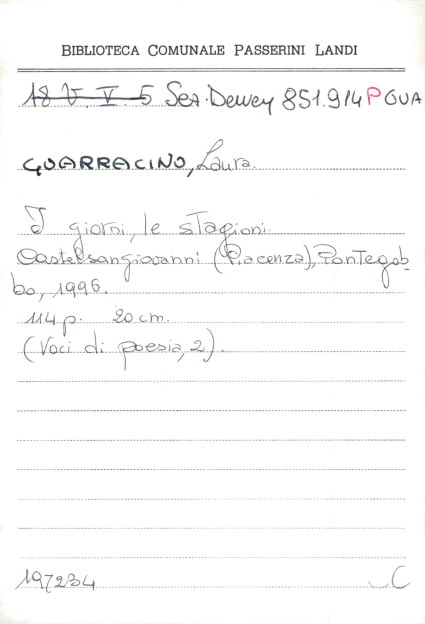 BIBLIOTECA COMUNALE PASSERINI LANDI
18 V. V 5 Sez. Dewey 851.914 P GUA
GUARRACINO, Laura.
I giorni, le stagioni.
Castelsangiovanni (Piacenza), Pontegob-
bo, 1996.
114 p. 20 cm.
(Voci di poesia, 2).
197234 C